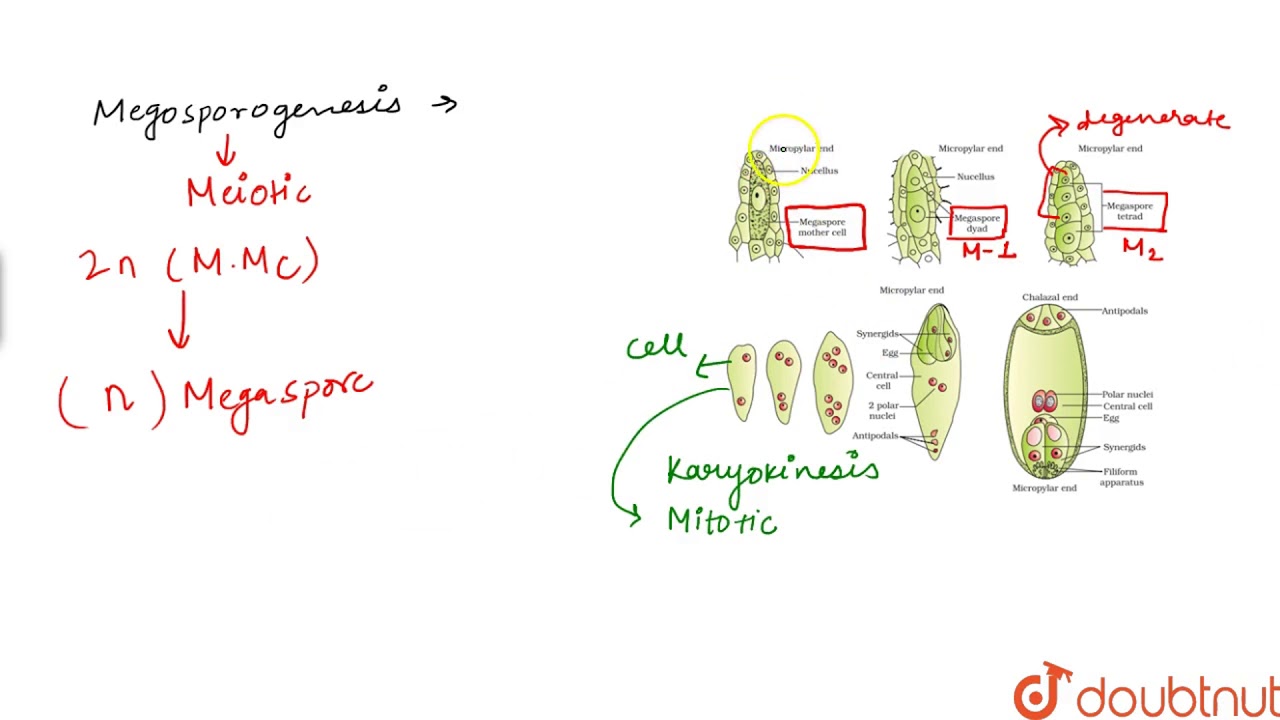 Megosporogenesis →
Meiotic
2n (M.MC)
(n) Megaspore
degenerate
Micropylar end
Nucellus
Megaspore
mother cell
Micropylar end
Nucellus
Megaspore
dyad
M-1
Micropylar end
Megaspore
tetrad
M2
cell
Karyokinesis
Mitotic
Micropylar end
Synergids
Egg
Central
cell
2 polar
nuclei
Antipodals
Chalazal end
Antipodals
Polar nuclei
Central cell
Egg
Synergids
Filiform
apparatus
Micropylar end
doubtnut